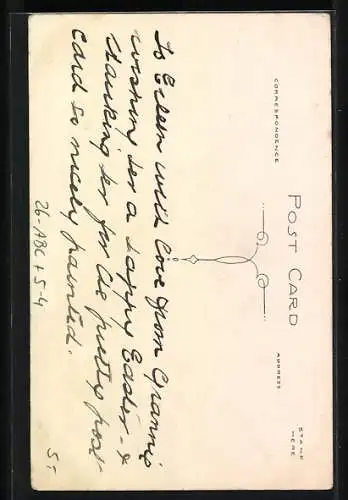 POST CARD
CORRESPONDENCE
ADDRESS
STAMP
HERE
To Eileen with love from Grannie
wishing her a happy Easter - &
thanking her for the pretty post
card so nicely painted.
26-ABC+5-4
5-